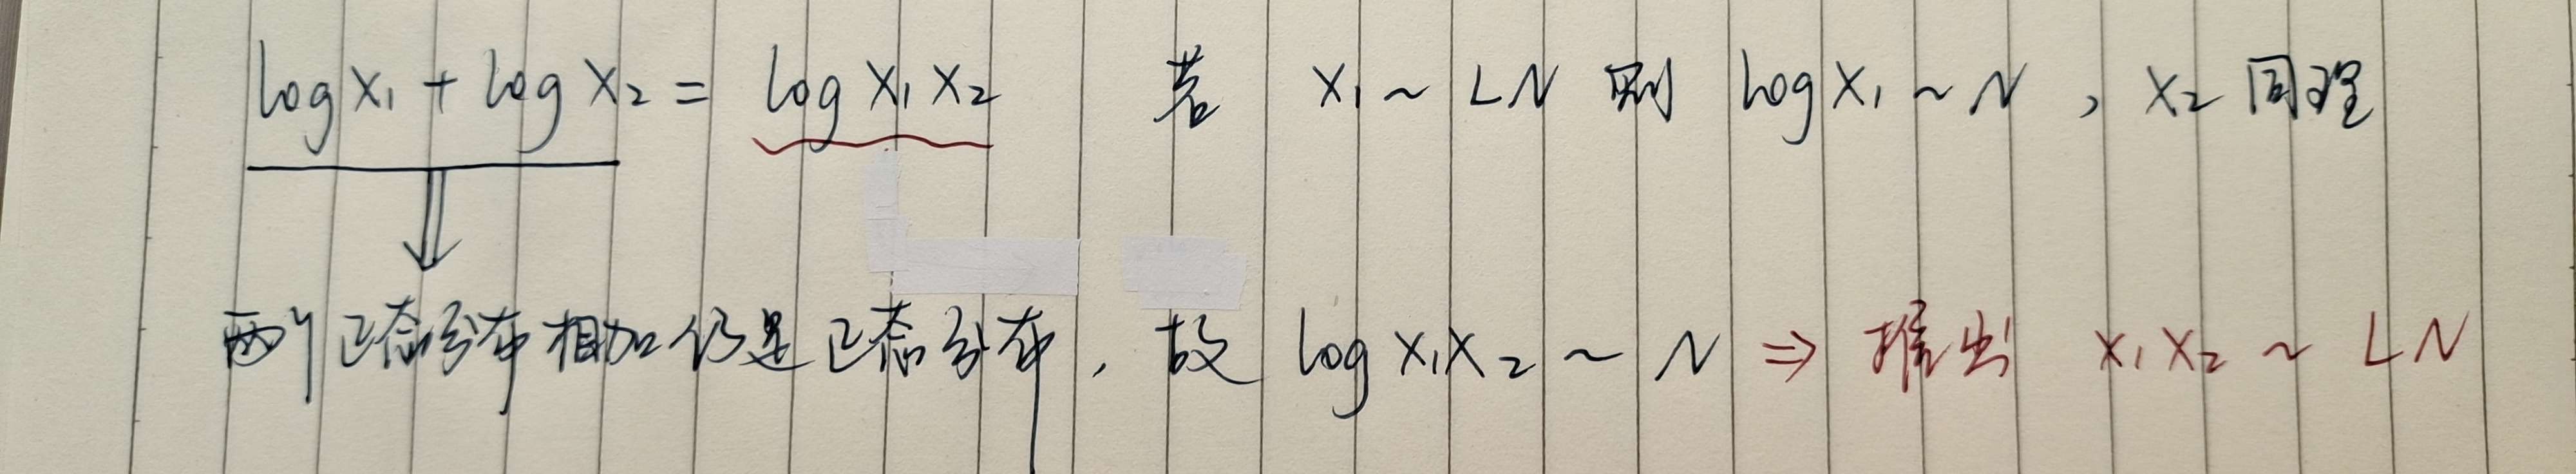 log X₁ + log X₂ = log X₁ X₂ 若 X₁ ~ LN 则 log X₁ ~ N , X₂ 同理
两个正态分布相加仍是正态分布, 故 log X₁X₂ ~ N ⇒ 推出 X₁ X₂ ~ LN